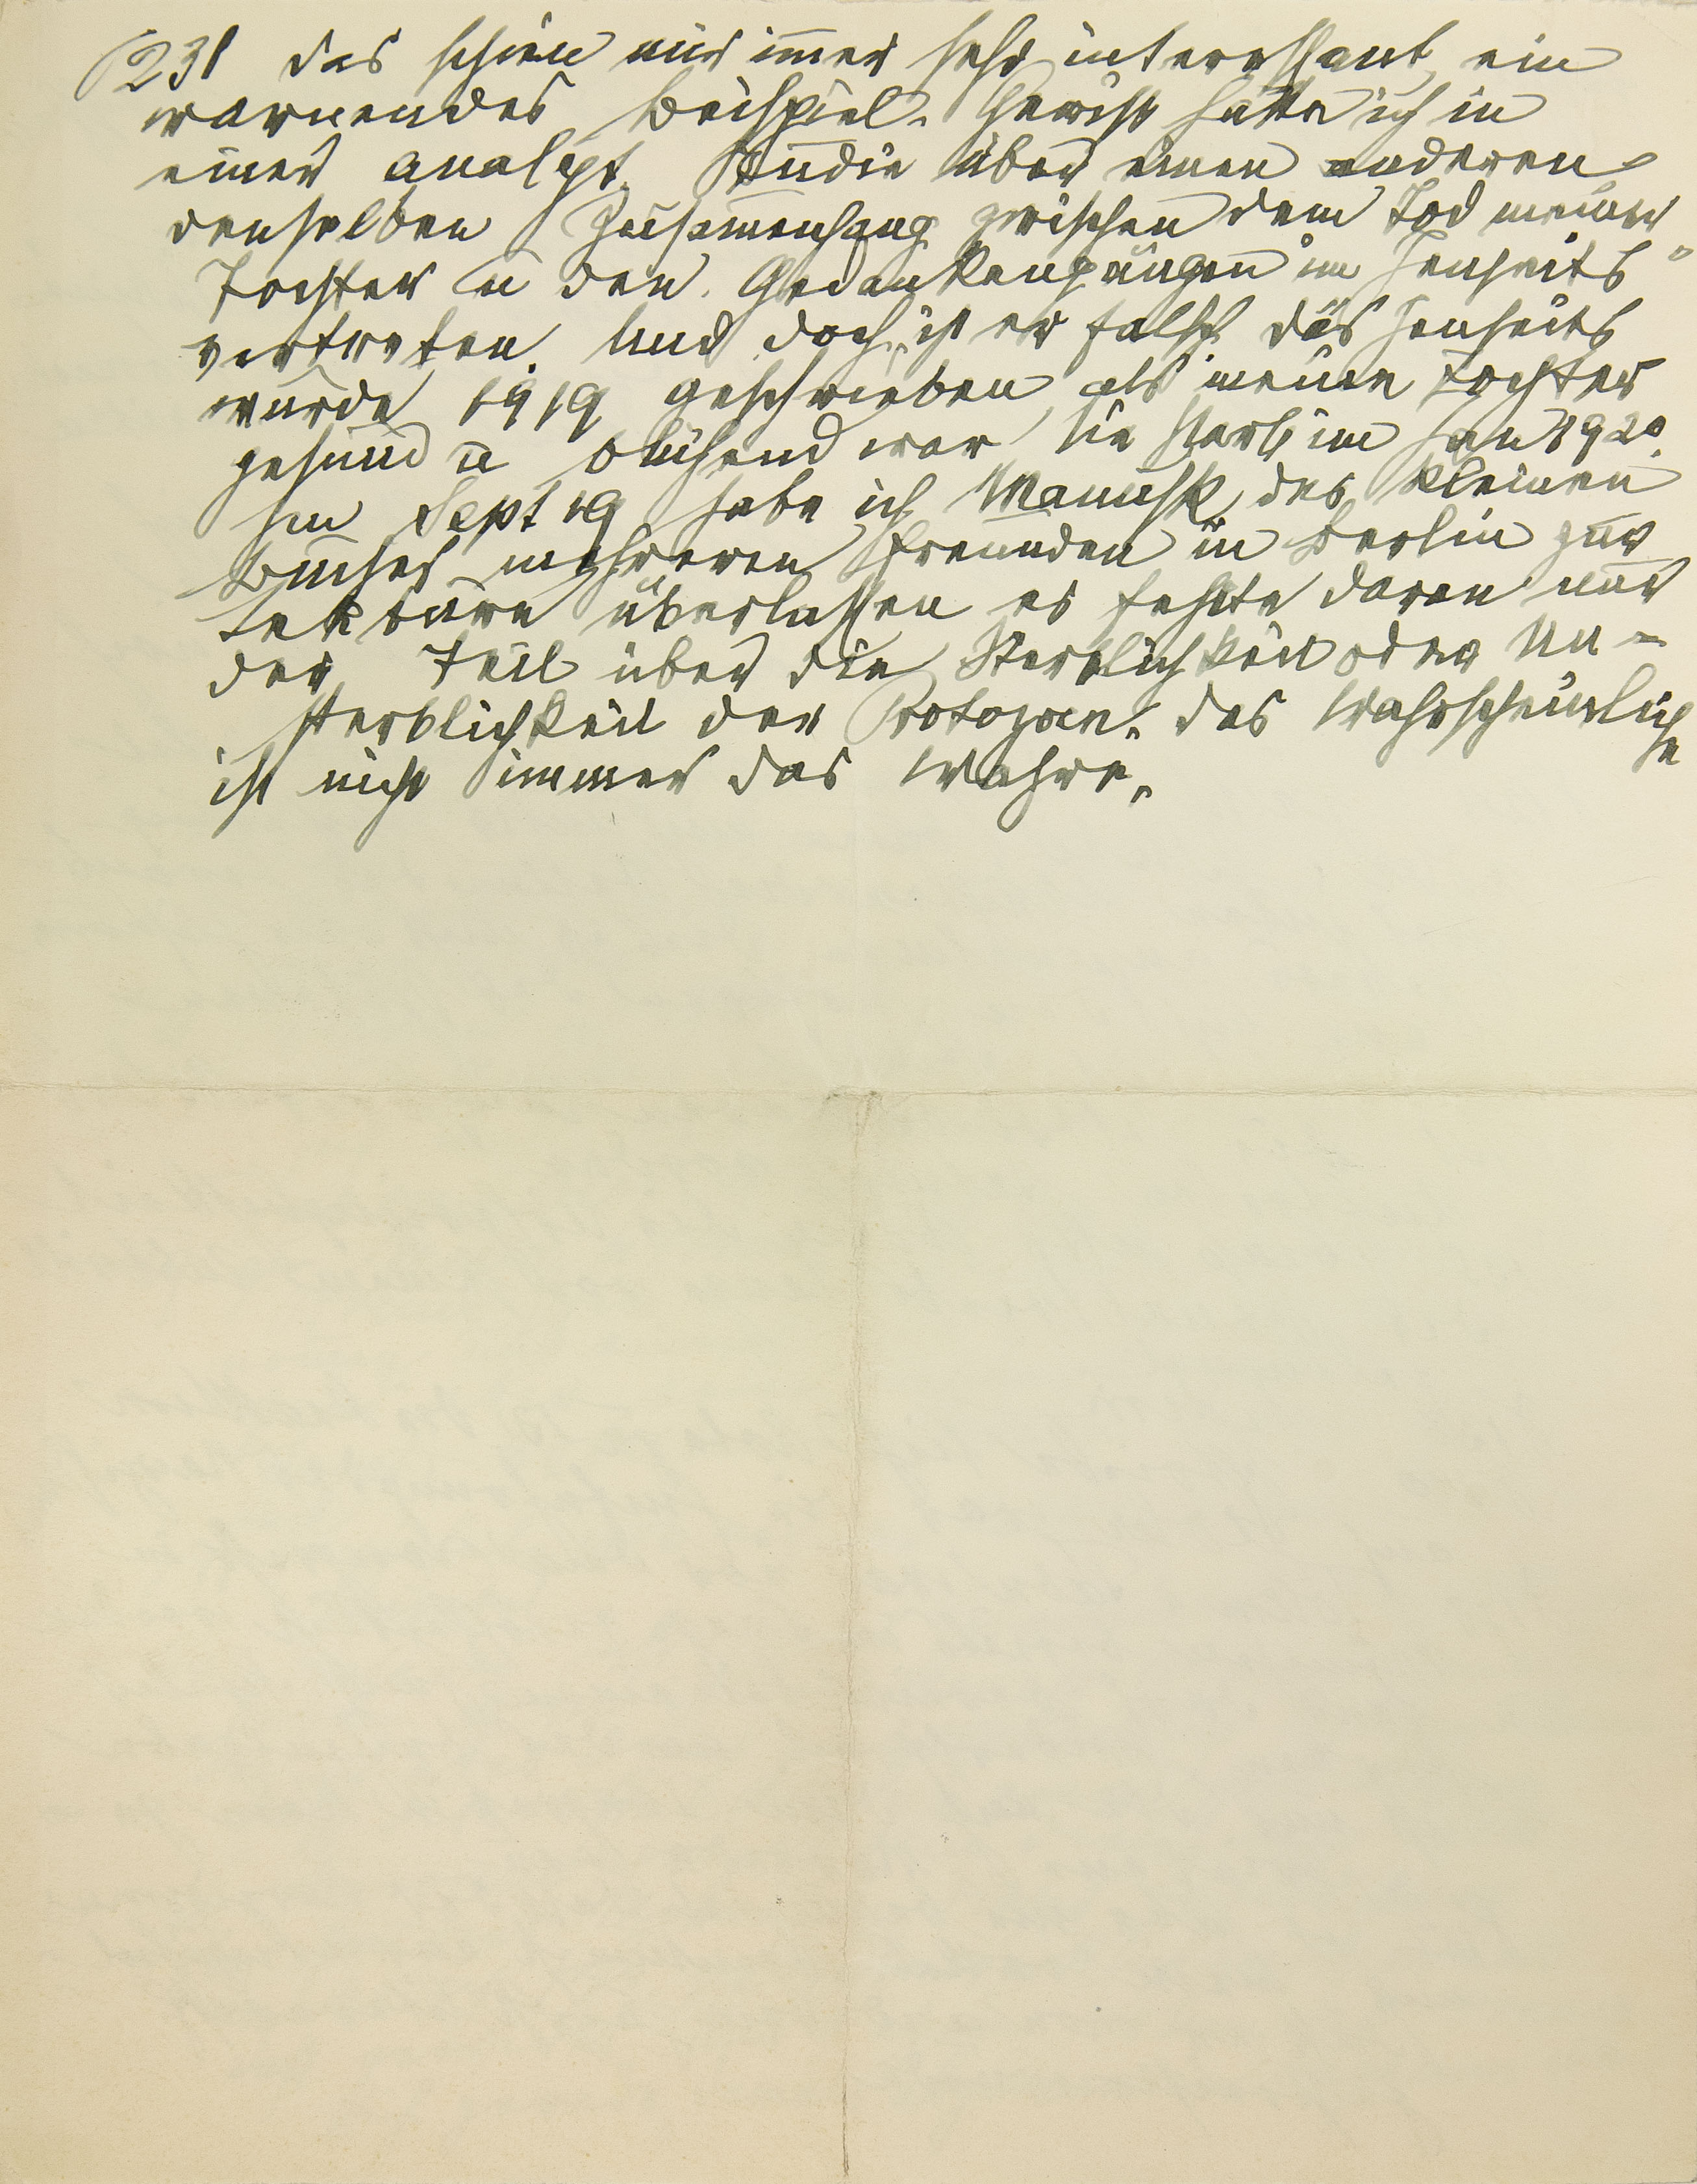 (231 Das schien mir immer sehr interessant, ein
warnendes Beispiel. Gewiss hätte ich in
einer analyt. Studie über einen anderen
denselben Zusammenhang zwischen dem Tod meiner
Tochter u den Gedankengängen im Jenseits"
vertreten. Und doch ist er falsch. Das Jenseits
wurde 1919 geschrieben, als meine Tochter
gesund u blühend war, sie starb im Jan 1920.
Im Sept 19 habe ich Manusk. des kleinen
Buches mehreren Freunden in Berlin zur
Lektüre überlassen es fehlte daran nur
der Teil über die Sterblichkeit oder Un=
sterblichkeit der Protozoen. Das Wahrscheinliche
ist nicht immer das Wahre.